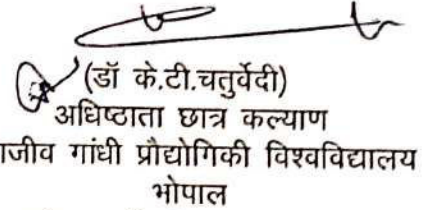 (डॉ के.टी.चतुर्वेदी)
अधिष्ठाता छात्र कल्याण
गांधी प्रौद्योगिकी विश्वविद्यालय
भोपाल